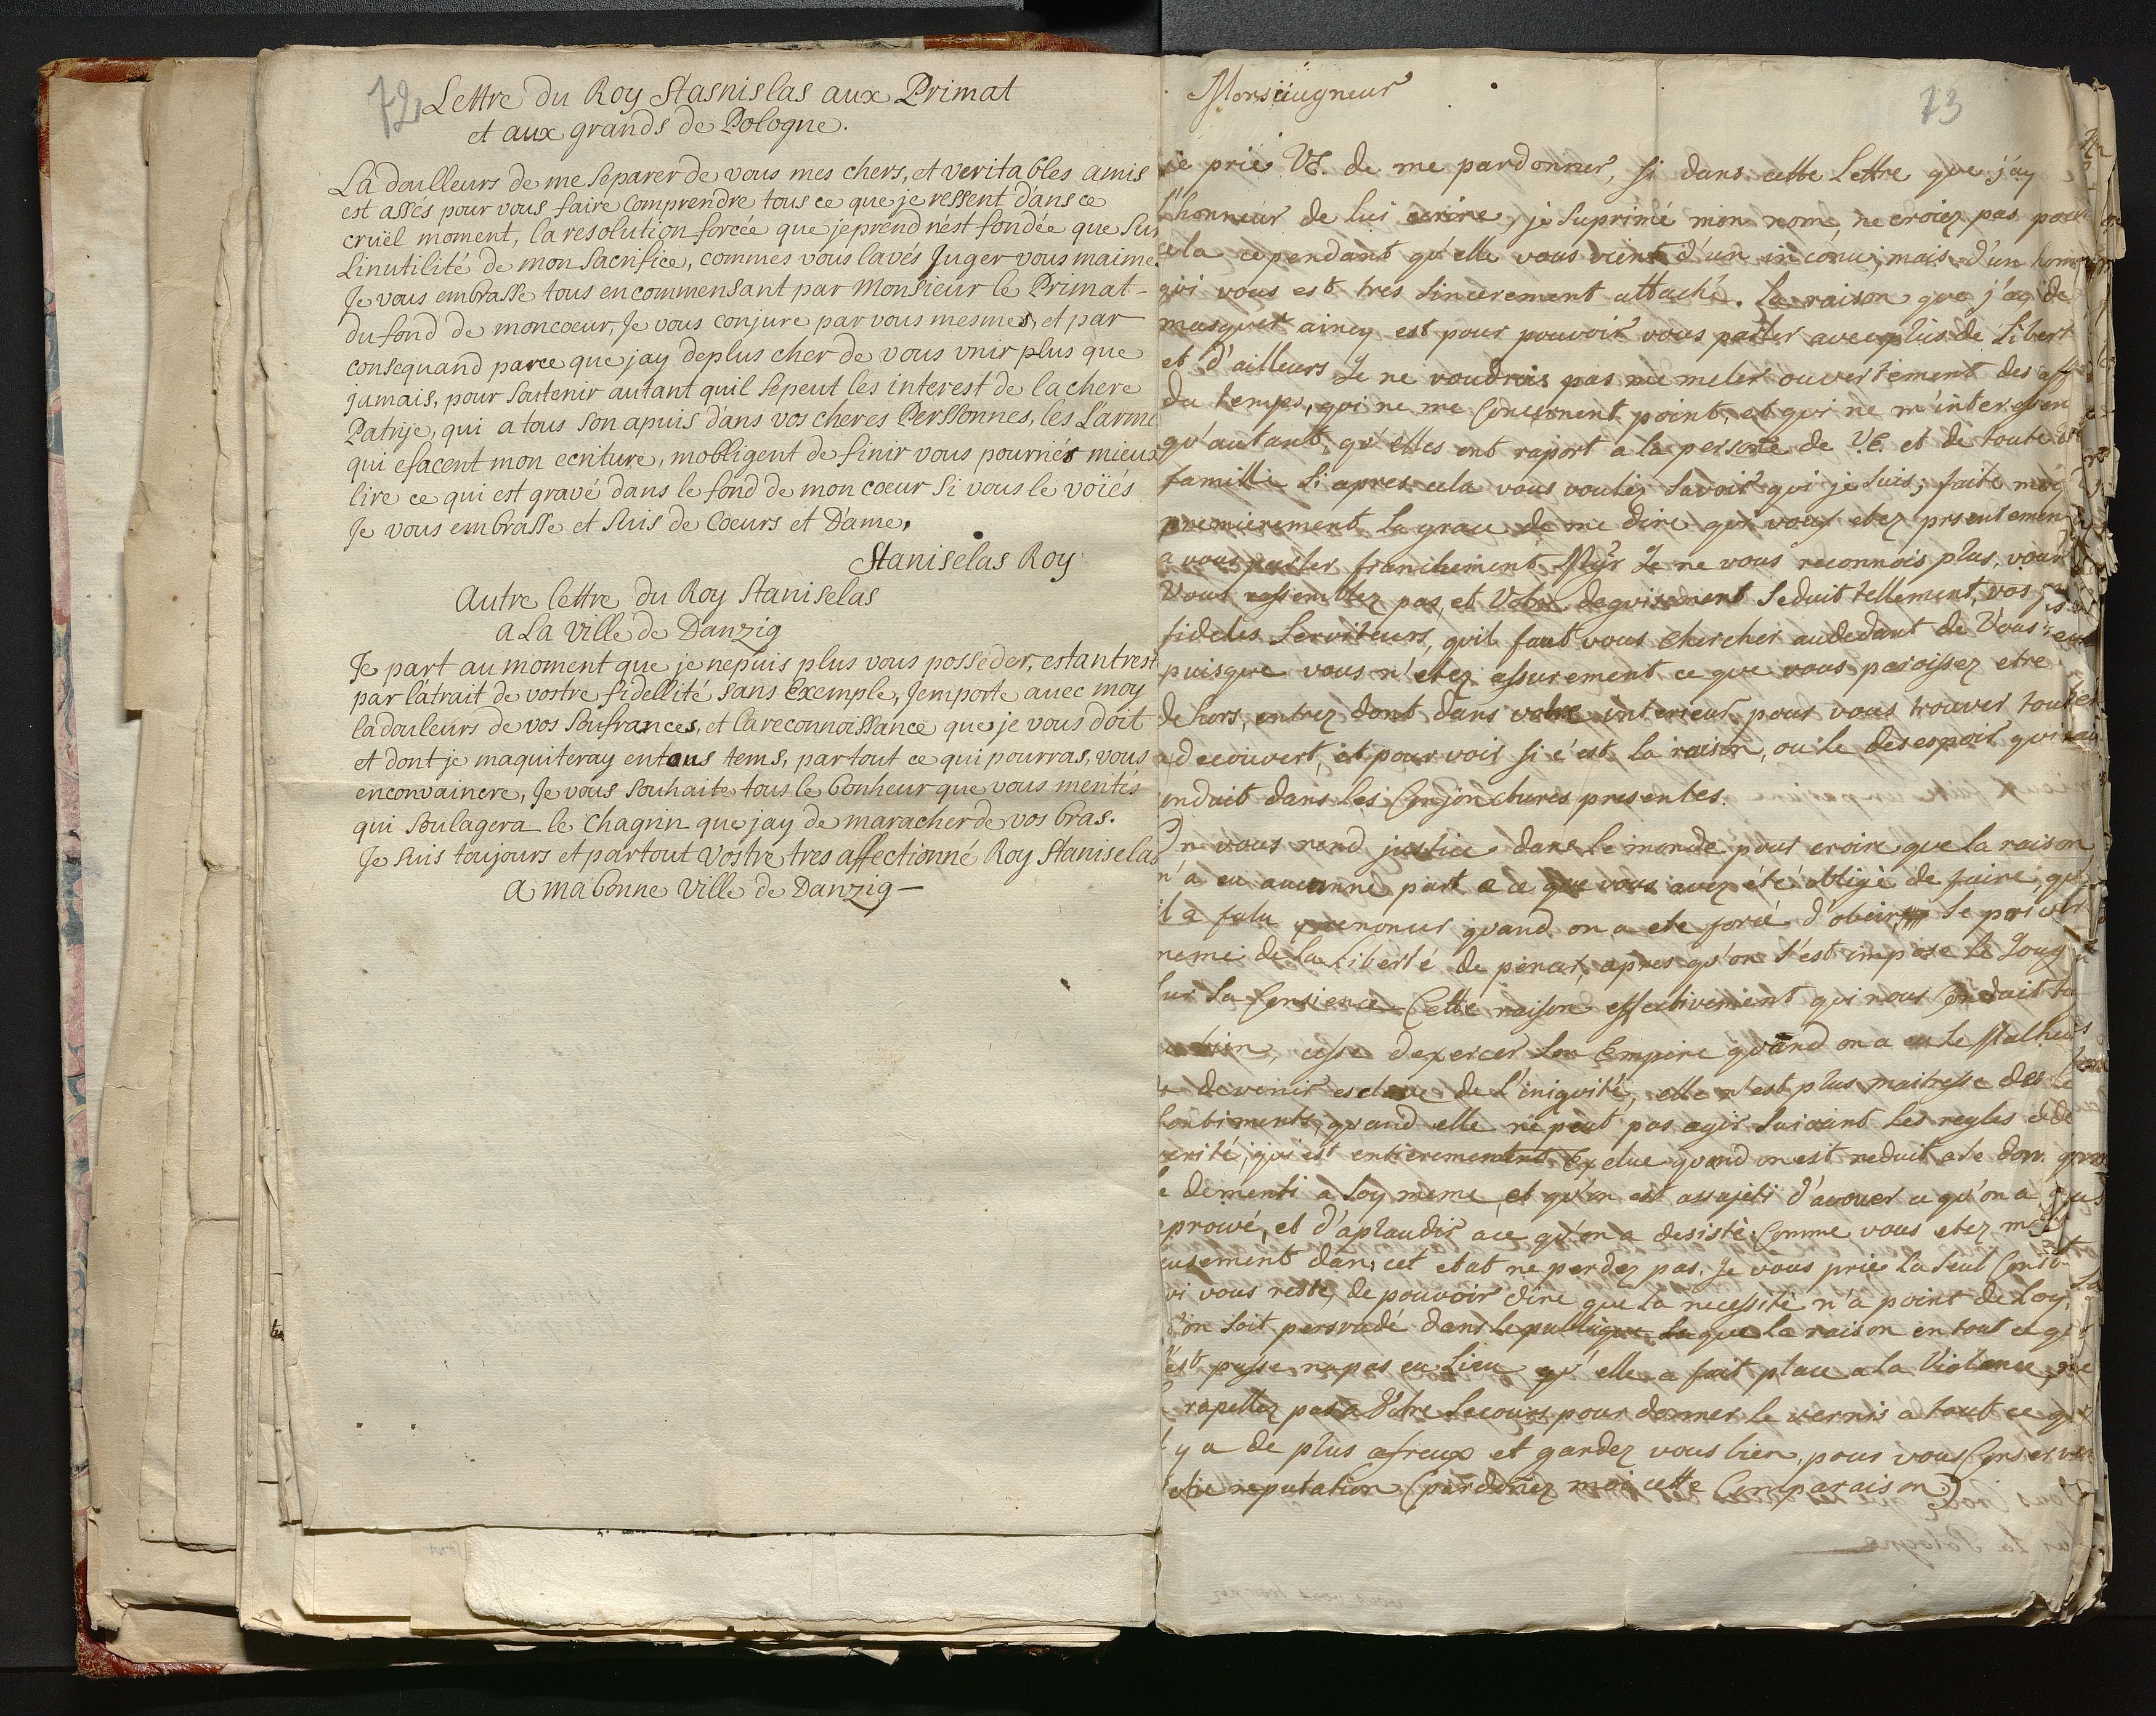 72
Lettre du Roy Stasnislas aux Primat
et aux grands de Pologne.
La doulleurs de me separer de vous mes chers, et veritables amis
est assés pour vous faire comprendre tous ce que je ressent d'ans ce
cruël moment, la resolution forcée que je prend nést fondée que sur
Linutilité de mon sacrifice, commes vous lavés Juger vous maime.
Je vous embrasse tous en commensant par Monsieur le Primat
du fond de mon coeur, Je vous conjure par vous mesmes, et par
consequand parce que jay de plus cher de vous vnir plus que
jamais, pour soutenir autant quil se peut les interest de la chere
Patrije, qui a tous son apuis d'ans vos cheres Perssonnes, lés Larme
qui efacent mon ecriture, mobligent de finir vous pourriés mieux
lire ce qui est gravé dans le fond de mon coeur si vous le voiés
Je vous embrasse et suis de Coeurs et D'ame.
Staniselas Roy
Autre lettre du Roy Staniselas
a La Ville de Danzig
Je part au moment que je nepuis plus vous posseder, estant rest
par l'atrait de vostre fidellité sans Exemple, Jemporte avec moy
la douleurs de vos soufrances, et la reconnoissance que je vous doit
et dont je maquiteray en tous tems, par tout ce qui pourras, vous
en convaincre, Je vous souhaite tous le bonheur que vous merités
qui soulagera le chagrin que jay de maracher de vos bras.
Je suis toujours et partout Vostre tres affectionné Roy Staniselas
a ma bonne Ville de Danzig
73
Monseiugneur
je prie VE. de me pardonner, si dans cette Lettre que j'ay
l'honneur de lui ecrire, je suprime mon nom, ne croiez pas pour
cela cependant qu'elle vous vient d'un inconu, mais d'un hom
qvi vous est tres sincerement attaché. La raison que j'ay de
masquer aincy est pour pouvoir vous parler avec plus de Libert
et d'ailleurs Je ne voudrois pas me meler ouvertement des aff
du temps, qvi ne me concernent point, et qvi ne m'interessen
qv'autant, qv'elles ont raport a la persone de V.E. et de toute
famille. Si apres cela vous voulez savoir qvi je suis, faite moi
premierement la grace de me dire qvi vous etez presentemen
a vous parler franchement Mgr Je ne vous reconnois plus, vous
Vous ressemblez pas, et Votre deguisement seduit tellement, vos
fideles Serviteurs, qvil faut vous chercher au dedant de Vous
puisque vous n'etez assurement ce que vous paroissez etre
dehors, entrez dont dans votre interieur pour vous trouver tout
a decouvert, et pour voir si c'est la raison, ou le desespoir qvi
onduit dans les Conjonctures presentes.
On vous rend justice dans le monde pour croire que la raison
n'a eu aucunne part a ce que vous avez été obligé de faire, qv
il a falu renoncer qvand on a ete forcé d'obeir, se priver
meme de la Liberté de penser, apres qv'on s'est imposé le Joug
sur sa Consience. Cette raison effectivement qvi nous conduit
bien, cesse d'exercer son Empire qvand on a eu le Malheur
de devenir esclave de L'iniqvité, elle n'est plus maitresse des
sentiments, qvand elle ne peut pas agir suivant les regles de
verité, qvi est entierement Exclue qvand on est reduit a se don
le dementi a soy meme, et qv'on est assujeti d'avouer ce qv'on a
eprouvé, et d'aplaudir a ce qv'on a desisté. Comme vous etez
eusement dans cet etat ne perdez pas, je vous prie la seul Conso
qvi vous reste, de pouvoir dire que la necessité n'a point de Loy
l'on soit persvadé dans le publique que la raison en tout ce qvi
s'est passe na pas eu Lieu qv'elle a fait place a la Violence, que
rapellez pas a Votre Secours pour donner le vernis a tout ce qv
il y a de plus afreux et gardez vous bien, pour vous Conserver
votre reputation (pardonez moi cette Comparaison)